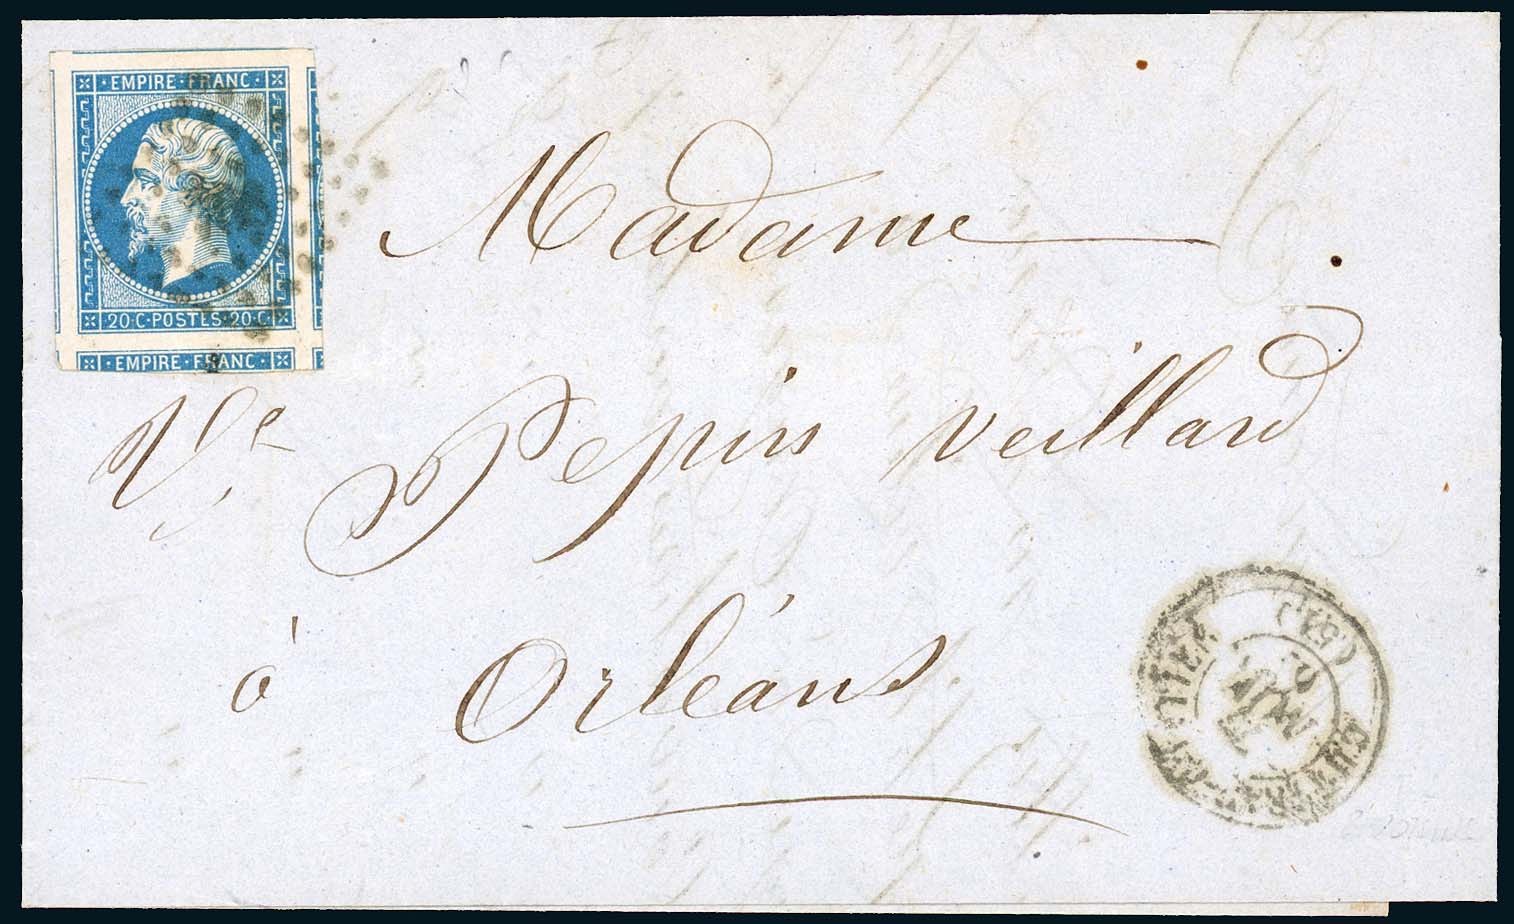 EMPIRE · FRANC ·
20 · C · POSTES · 20 · C ·
EMPIRE · FRANC ·
Madame
Ve Pepin Veillard
à Orléans
(52)